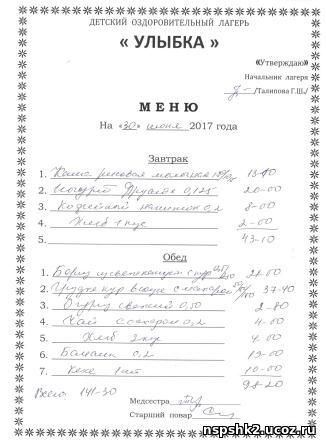 ДЕТСКИЙ ОЗДОРОВИТЕЛЬНЫЙ ЛАГЕРЬ
« УЛЫБКА »
«Утверждаю»
Начальник лагеря
/Талипова Г.Ш./
МЕНЮ
На «30» июня 2017 года
Завтрак
1. Каша рисовая молочная 13-10
2. Йогурт 0,125 20-00
3. Кофейный напиток 0,2 8-00
4. Хлеб 1 кус 2-00
5. 43-10
Обед
1. Борщ 21-00
2. 37-40
3. Огурец свежий 0,50 2-80
4. Чай с сахаром 0,2 4-00
5. Хлеб 2 кус 4-00
6. Банан 0,2 19-00
7. Кекс 1 шт 10-00
98-20
Всего 141-30
Медсестра
Старший повар
nspshk2.ucoz.ru